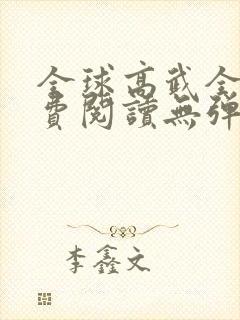 全球高武全
費閱讀無彈
李鑫文